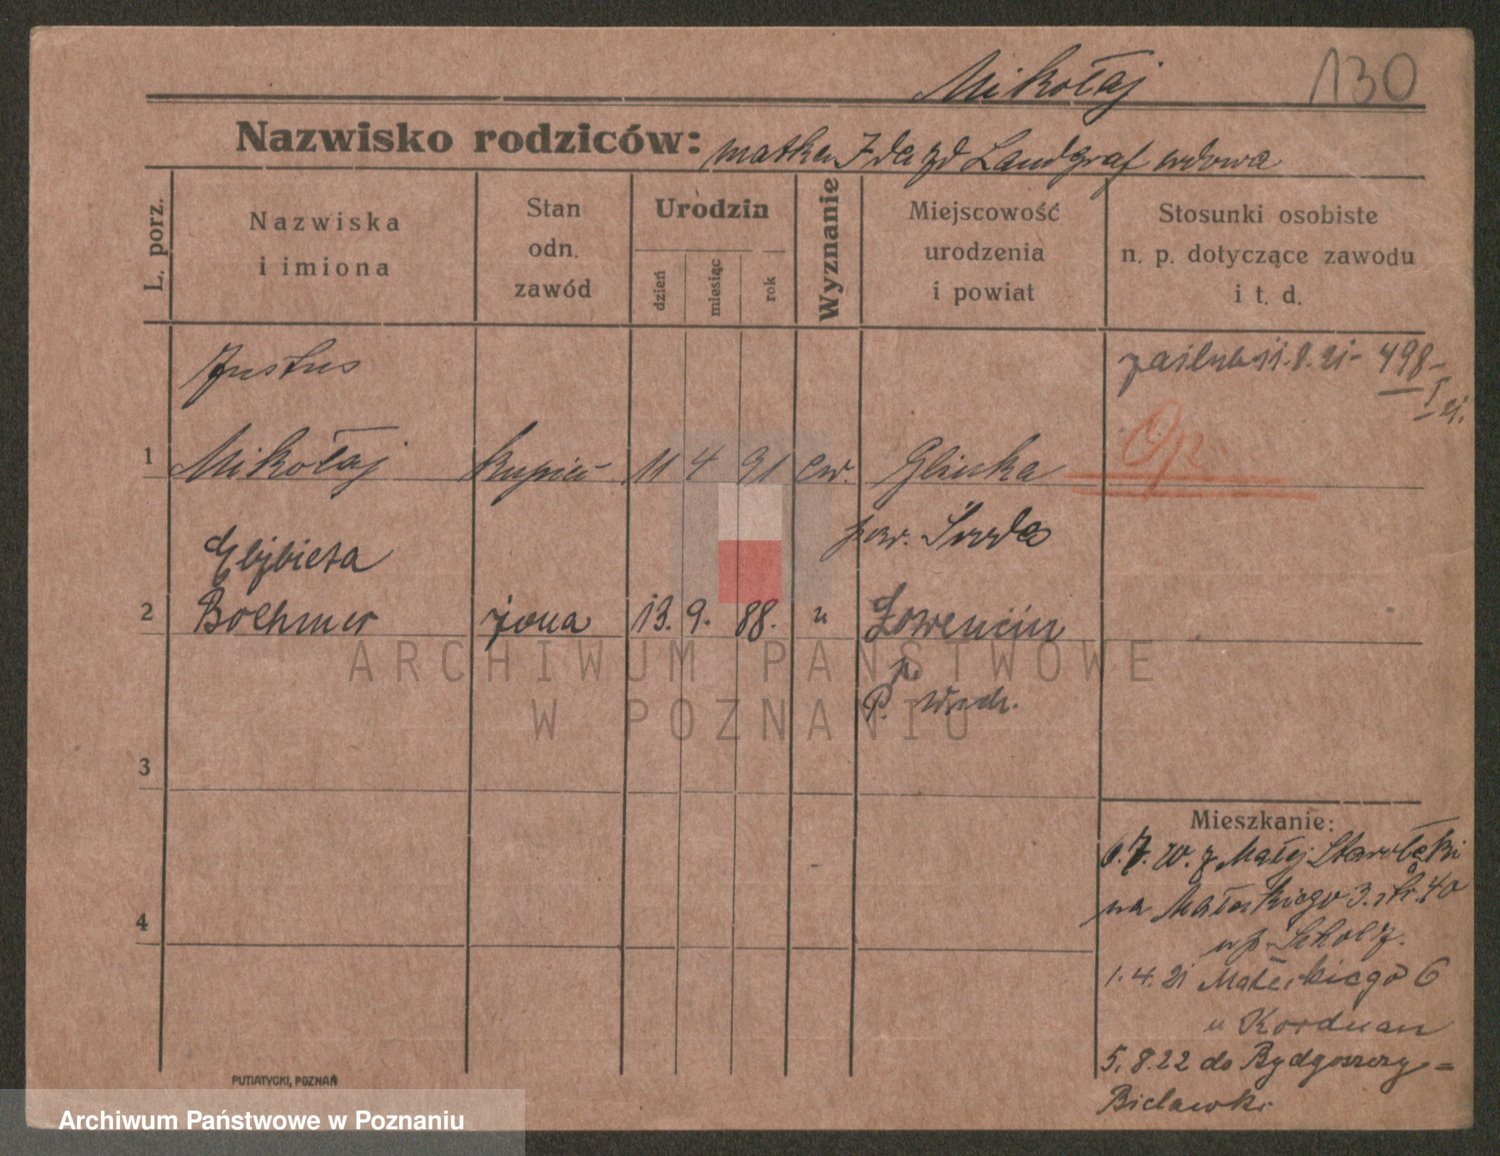 Mikołaj 130
Nazwisko rodziców: matka Ida zd Landgraf wdowa
L. porz.
Nazwiska
i imiona
Stan
odn.
zawód
Urodzin
dzień
miesiąc
rok
Wyznanie
Miejscowość
urodzenia
i powiat
Stosunki osobiste
n. p. dotyczące zawodu
i t. d.
Justus
zaślub 11.8.21 - 498
I 21.
1 Mikołaj kupiec 11 4 91 ew. Glinka
Op.
pow. Środa
Elżbieta
2 Boehmer żona 13. 9. 88. " Łowencin
p.
P. Wsch.
3
4
Mieszkanie:
z Małej Starołęki
na Małeckiego 3. str. 40
u p. Scholz.
1.4.21 Małeckiego 6
u Korduan
5.8.22 do Bydgoszczy =
Bielawki
PUTIATYCKI, POZNAŃ
ARCHIWUM PAŃSTWOWE
W POZNANIU
Archiwum Państwowe w Poznaniu